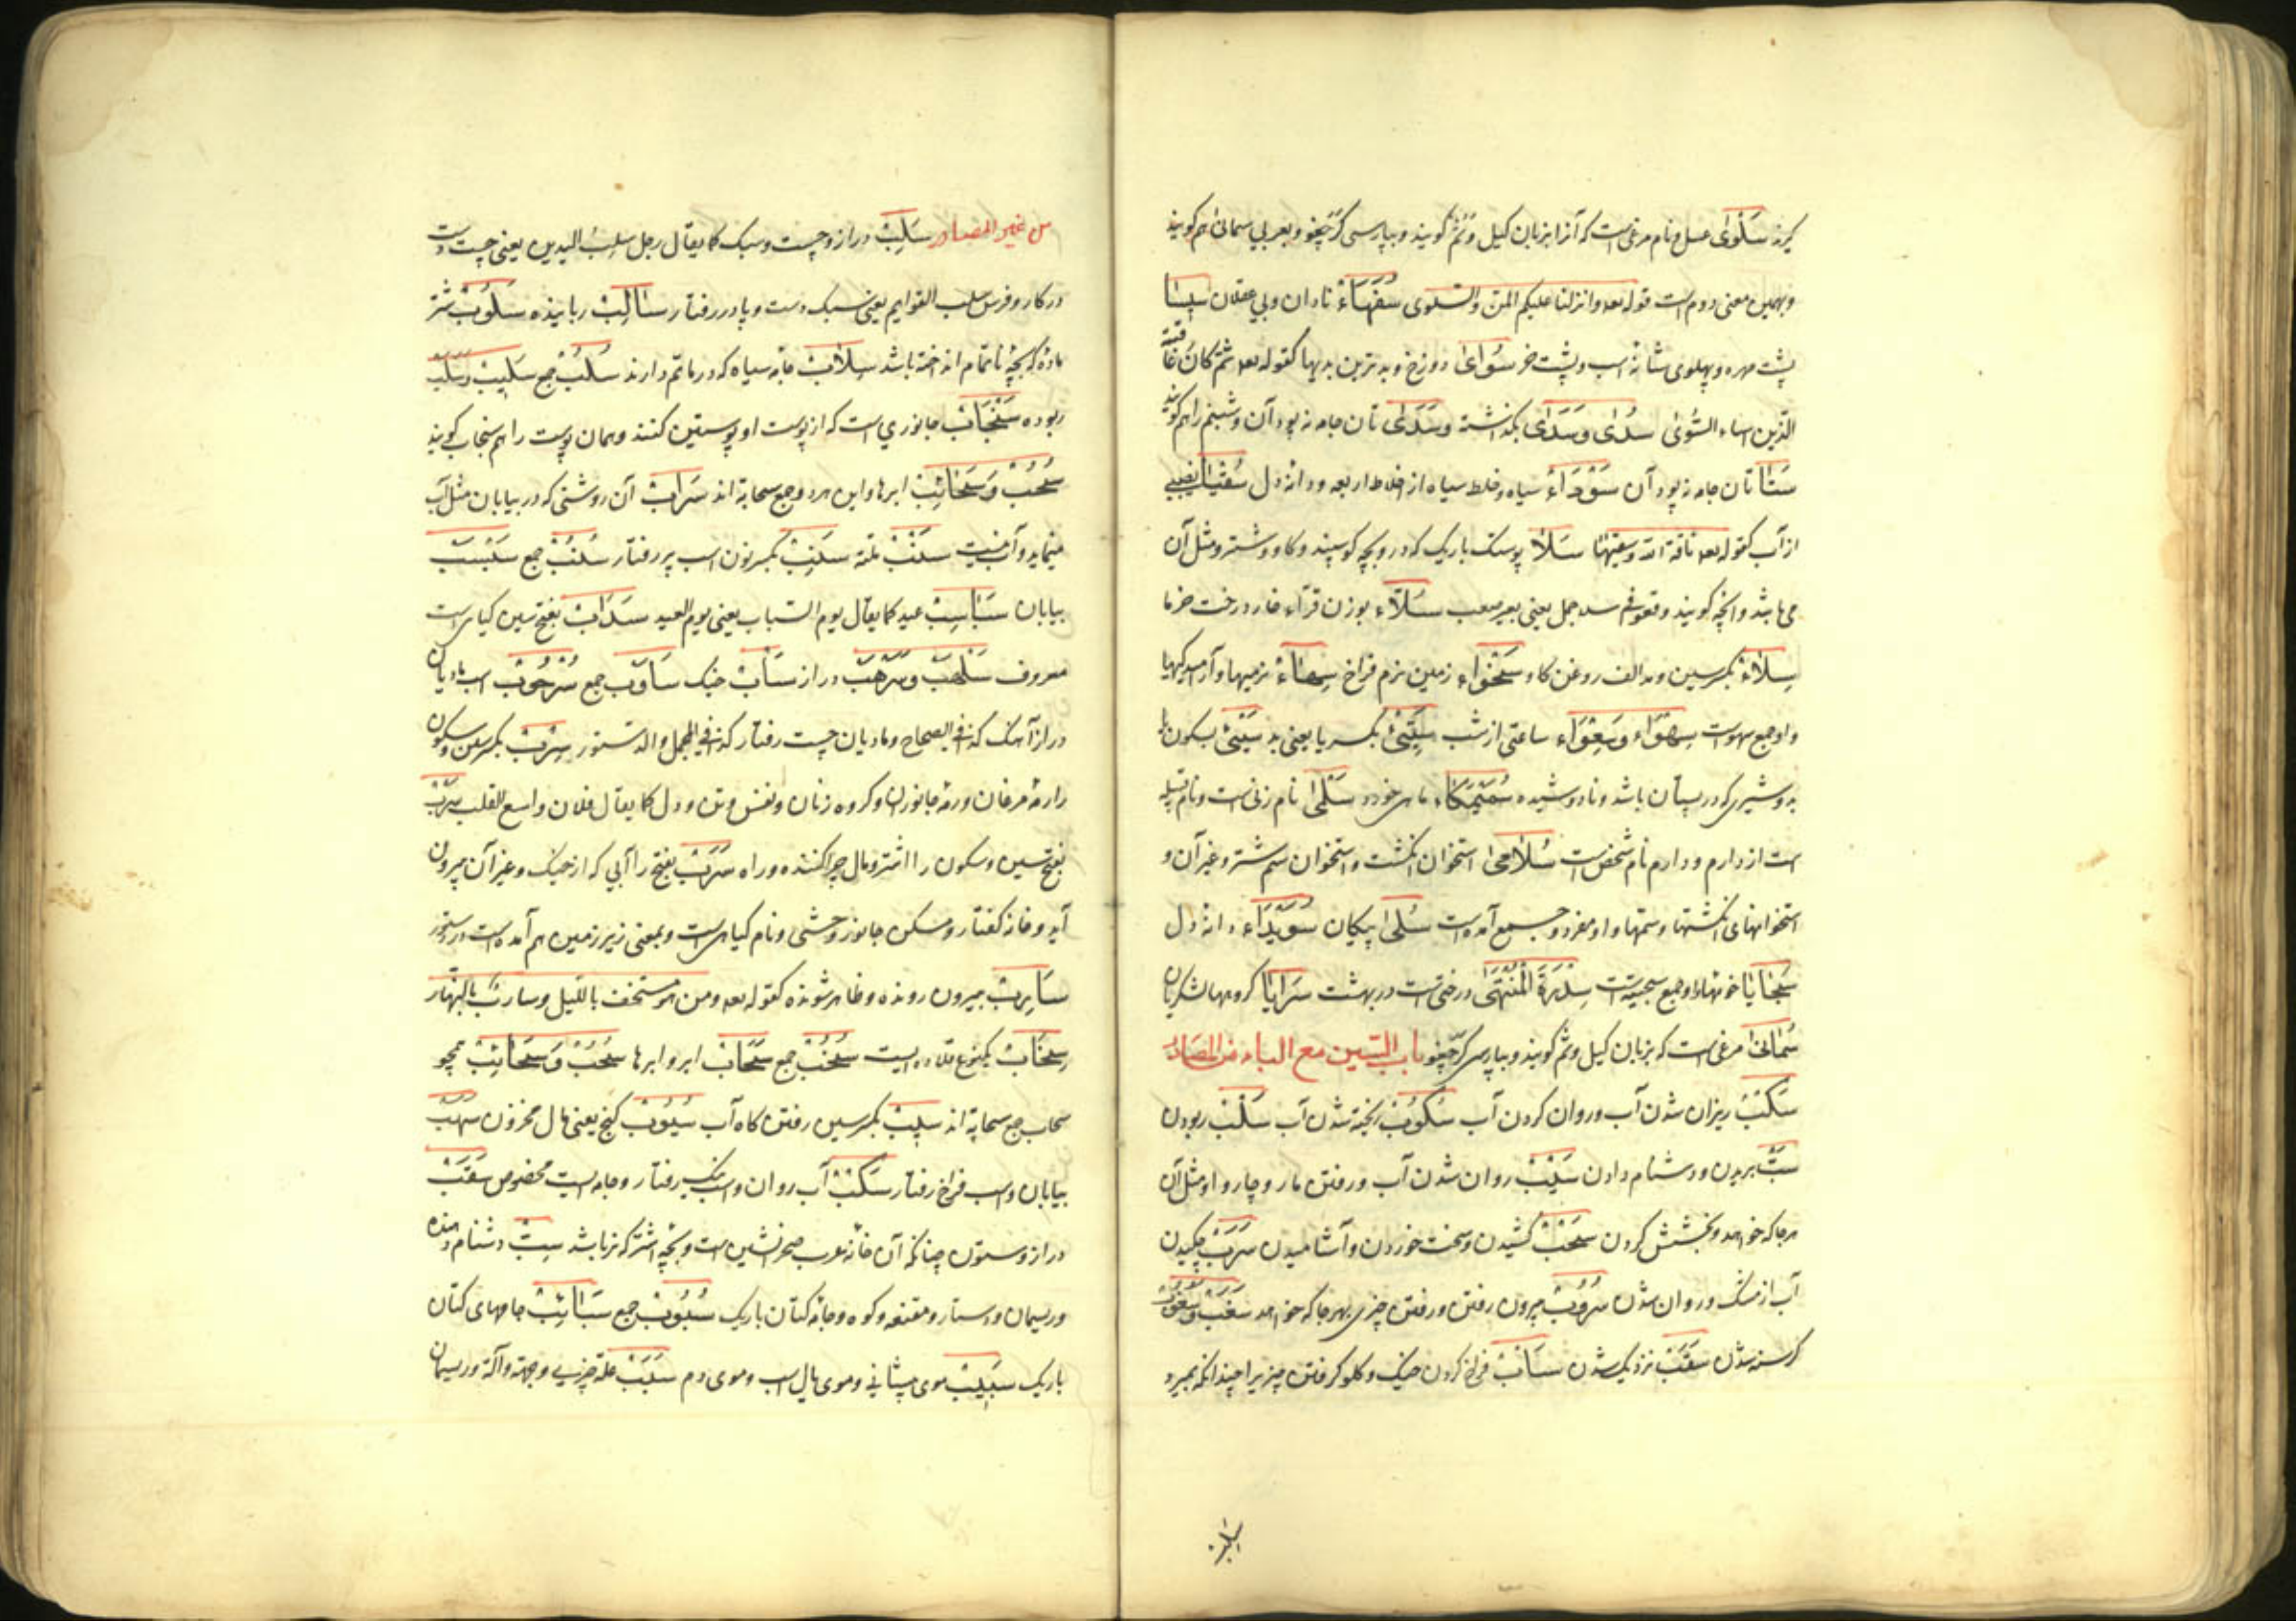 کیرند سَلْویٰ عسل و نام مرغی است که آنرا بزبان کیل وُشُمْ کویند و بپارسی کَرَجَفو و بعربی سمانی هم کویند
و بهمین معنی دوم است قوله تعه وانزلنا علیکم المن والسلوی سُفَهَاءُ نادان و بی عقلان سِیسَا
پشت مهره و پهلوی شانهٔ اسب و پشت خر سُوْایٰ دوزخ و بدترین بدیها کقوله تعه ثم کان عاقبة
الذین اساء السُّوئیٰ سُدًی وسَدَی بکذاشته وسَدَی تان جامه نه پود آن و شبنم را هم کویند
سَتَا تان جامه نه پود آن سَوْدَاءُ سیاه و خلط سیاه از اخلاط اربعه و دانهٔ دل سُقْیَا نصیبی
از آب کقوله تعه ناقة الله وسقیها سَلَا پوستک باریک که در و بچه کوسپند و کاو و شتر و مثل آن
می باشد و آنچه کویند وقع فی سلا جمل یعنی بعیر صعب سُلَّاء بوزن قرّاء خار درخت خرما
سِلَاءُ بکسر سین و مد الف روغن کاو سَخْوَاء زمین نرم فراخ سِهَاءُ نرمیها و آرمیدکیها
و او جمع سهوت سِهْوَاء وسَعْوَاء ساعتی از شب سَیِّیْ بکسر یا یعنی بد سَیْیْ بسکون یا
بد و شیری که در پستان باشد و نادوشیده سُمَیْکَاء ماهی خورد سَلْمَیٰ نام زنی است و نام قبیله
است از دارم و دارم نام شخصی است سُلَامَیٰ استخوان انکشت و استخوان سم شتر و غیر آن و
استخوانهای انکشتها و سمها و او مفرد و جمع آمده است سُلَیٰ پیکان سُوَیْدَاء دانهٔ دل
سَجَایَا خویها و او جمع سجیت است سِدْرَةُ الْمُنْتَهَی درختی است در بهشت سَرَایَا کروهها لشکریان
سُمَانَیٰ مرغی است که بزبان کیل وشم کویند و بپارسی کرجفو باب السین مع الباء من المصادر
سَکْبْ ریزان شدن آب و روان کردن آب سُکُوبْ ریخته شدن آب سَلْبْ ربودن
سَبّ بریدن و دشنام دادن سَیْبْ روان شدن آب و رفتن مار و چاروا و مثل آن
هر جا که خواهد و بخشش کردن سَحْبْ کشیدن و سخت خوردن و آشامیدن سَرَبْ چکیدن
آب از مشک و روان شدن سُرُوبْ بیرون رفتن و رفتن چیزی بهر جا که خواهد سَغَبْ وسُغُوبْ
کرسنه شدن سَقَبْ نزدیک شدن سَأْبْ فراخ کردن خیک و کلو کرفتن چیزیرا چندانکه بمیرد
سلب
من غیر المصادر سَلِبْ دراز و چست و سبک کما یقال رجل سلب الیدین یعنی چست دست
در کار و فرس سلب القوایم یعنی سبک دست و پا در رفتار سَالِبْ رباینده سَلُوبْ شتر
ماده که بچهٔ ناتمام انداخته باشد سِلَابْ جامهٔ سیاه که در ماتم دارند سُلُبْ جمع سَلِیبْ وسَلَبْ
ربوده سَنْجَابْ جانوری است که از پوست او پوستین کنند و همان پوست را هم سنجاب کویند
سُحُبْ وَسَحَائِبْ ابرها و این هر دو جمع سحابة اند سَرَابْ آن روشنی که در بیابان مثل آب
مینماید و آب نیست سَلْبْ سَکِبْ بکسر نون اسب پر رفتار سُلُبْ جمع سَبْسَبْ
بیابان سَبَاسِبْ عید کما یقال یوم السباسب یعنی یوم العید سَدَابْ بفتح سین کیاهی است
معروف سَلْهَبْ وسَرْهَبْ دراز سَأْبْ خیک سَآوِبْ جمع سُرْحُوبْ اسب مادیان
دراز آهنک کذا فی الصحاح و مادیان چست رفتار کذا فی المجمل والدستور سِرْبْ بکسر سین وسکون
را رمهٔ مرغان و رمهٔ جانوران و کروه زنان و نفس و تن و دل کما یقال فلان واسع القلب سَرْبْ
بفتح سین و سکون را اشتر و مال چرا کننده و راه سَرَبْ بفتح را آبی که از خیک و غیر آن بیرون
آید و خانهٔ کفتار و مسکن جانور وحشی و نام کیاهی است و بمعنی زیر زمین هم آمده است در دستور
سَارِبْ بیرون رونده و ظاهر شونده کقوله تعه ومن هو مستخف باللیل وسارب بالنهار
سِخَابْ یکنوع قلاده ایست سُخُبْ جمع سَحَابْ ابر و ابرها سُحُبْ وَسَحَائِبْ همچو
سحاب جمع سحابة اند سِیبْ بکسر سین رفتن کاه آب سُیُوبْ کنج یعنی مال مخزون سَهْبْ
بیابان و اسب فراخ رفتار سَکْبْ آب روان و اسب سبک رفتار و جامه ایست مخصوص سَقْبْ
دراز و ستون چنانکه آن خانه عرب صحرانشین است و بچهٔ اشتر که نر باشد سِبّ دشنام دهنده
و ریسمان و دستار و مقنعه و کوه و جامهٔ کتان باریک سُبُوبْ جمع سَبَائِبْ جامهای کتان
باریک سَبِیبْ موی پیشانی و موی یال اسب و موی دم سَبَبْ علة چیزی و جهة و آلة و ریسمان